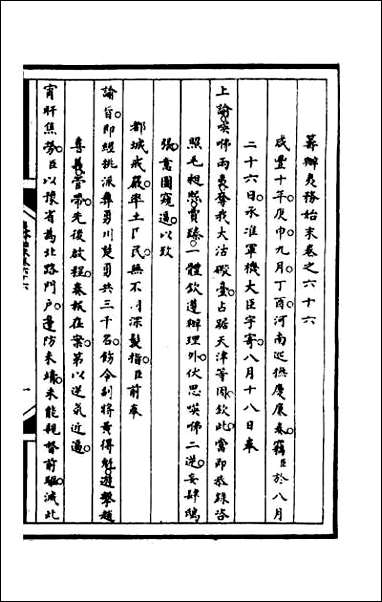 籌辦夷務始末卷之六十六
咸豐十年庚申九月丁酉河南巡撫慶廉奏竊臣於八月
二十六日承准軍機大臣字寄八月十八日奉
上諭嘆咈兩夷奪我大沽礮臺占踞天津等因欽此當即恭錄咨
照毛昶熙賈臻一體欽遵辦理外伏思嘆咈二逆妄肆鴟
張意圖窺逼以致
都城戒嚴率土臣民無不同深髮指臣前奉
諭旨即經挑派彝勇川楚勇共三千名飭令副將黃得魁遊擊趙
管帶先後啟程奏報在案第以逆氛近逼
宵旰焦勞臣以豫省為北路門戶邊防未靖未能親督前驅滅此